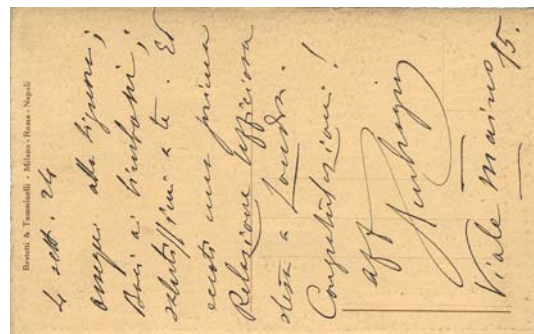 Bestetti & Tumminelli - Milano - Roma - Napoli
4 sett. 24
ossequi alla Signora;
Baci ai bimboni;
salutissimi a te. Ed
eccoti una prima
Relazione Ufficiosa
stesa a Londra.
Congratulazioni!
aff
Viale Maino
15.